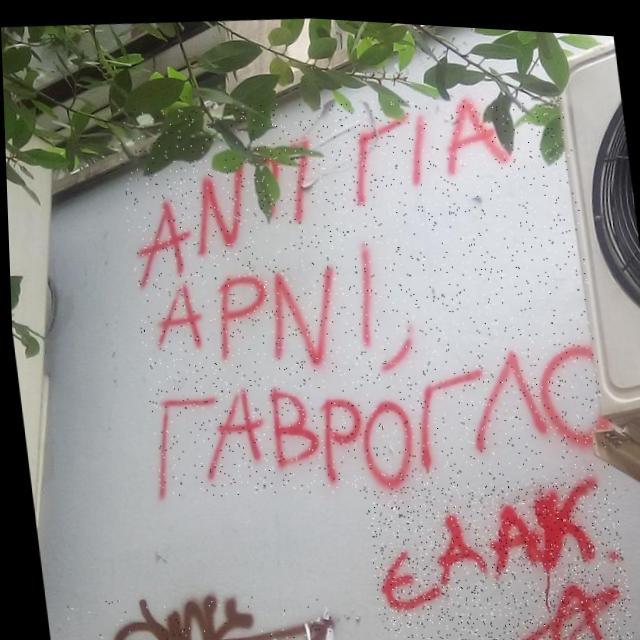 ΑΝΤΙ ΓΙΑ
ΑΡΝΙ,
ΓΑΒΡΟΓΛΟ